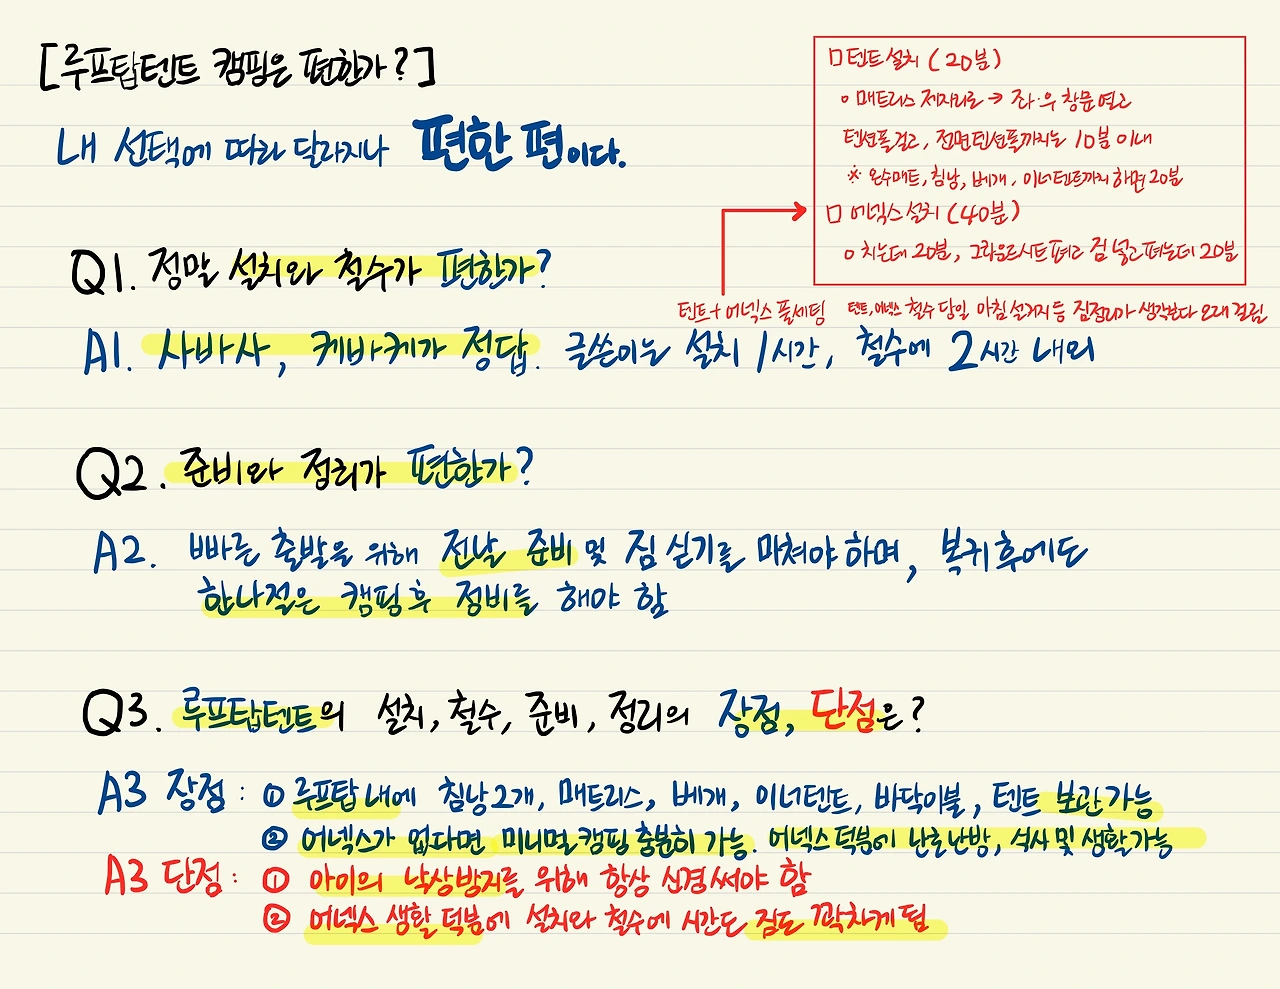 [루프탑텐트 캠핑은 편한가?]
내 선택에 따라 달라지나 편한 편이다.
□ 텐트설치 (20분)
○ 매트리스 제자리로 → 좌·우 창문열고
텐션폴걸고, 전면텐션폴까지는 10분 이내
※ 온수매트, 침낭, 베개, 이너텐트까지 하면 20분
□ 어넥스 설치 (40분)
○ 치는데 20분, 그라운드시트 펴고 짐 넣고 펴는데 20분
텐트+어넥스 풀세팅
텐트, 어넥스 철수 당일 아침 설거지 등 짐정리가 생각보다 오래 걸림
Q1. 정말 설치와 철수가 편한가?
A1. 사바사, 케바케가 정답. 글쓴이는 설치 1시간, 철수에 2시간 내외
Q2. 준비와 정리가 편한가?
A2. 빠른 출발을 위해 전날 준비 및 짐 싣기를 마쳐야 하며, 복귀 후에도
한나절은 캠핑 후 정비를 해야 함
Q3. 루프탑텐트의 설치, 철수, 준비, 정리의 장점, 단점은?
A3 장점 : ① 루프탑 내에 침낭2개, 매트리스, 베개, 이너텐트, 바닥이불, 텐트 보관 가능
② 어넥스가 없다면 미니멀캠핑 충분히 가능. 어넥스 덕분에 난로난방, 식사 및 생활가능
A3 단점 : ① 아이의 낙상방지를 위해 항상 신경써야 함
② 어넥스 생활 덕분에 설치와 철수에 시간도 짐도 꽉차게 됨